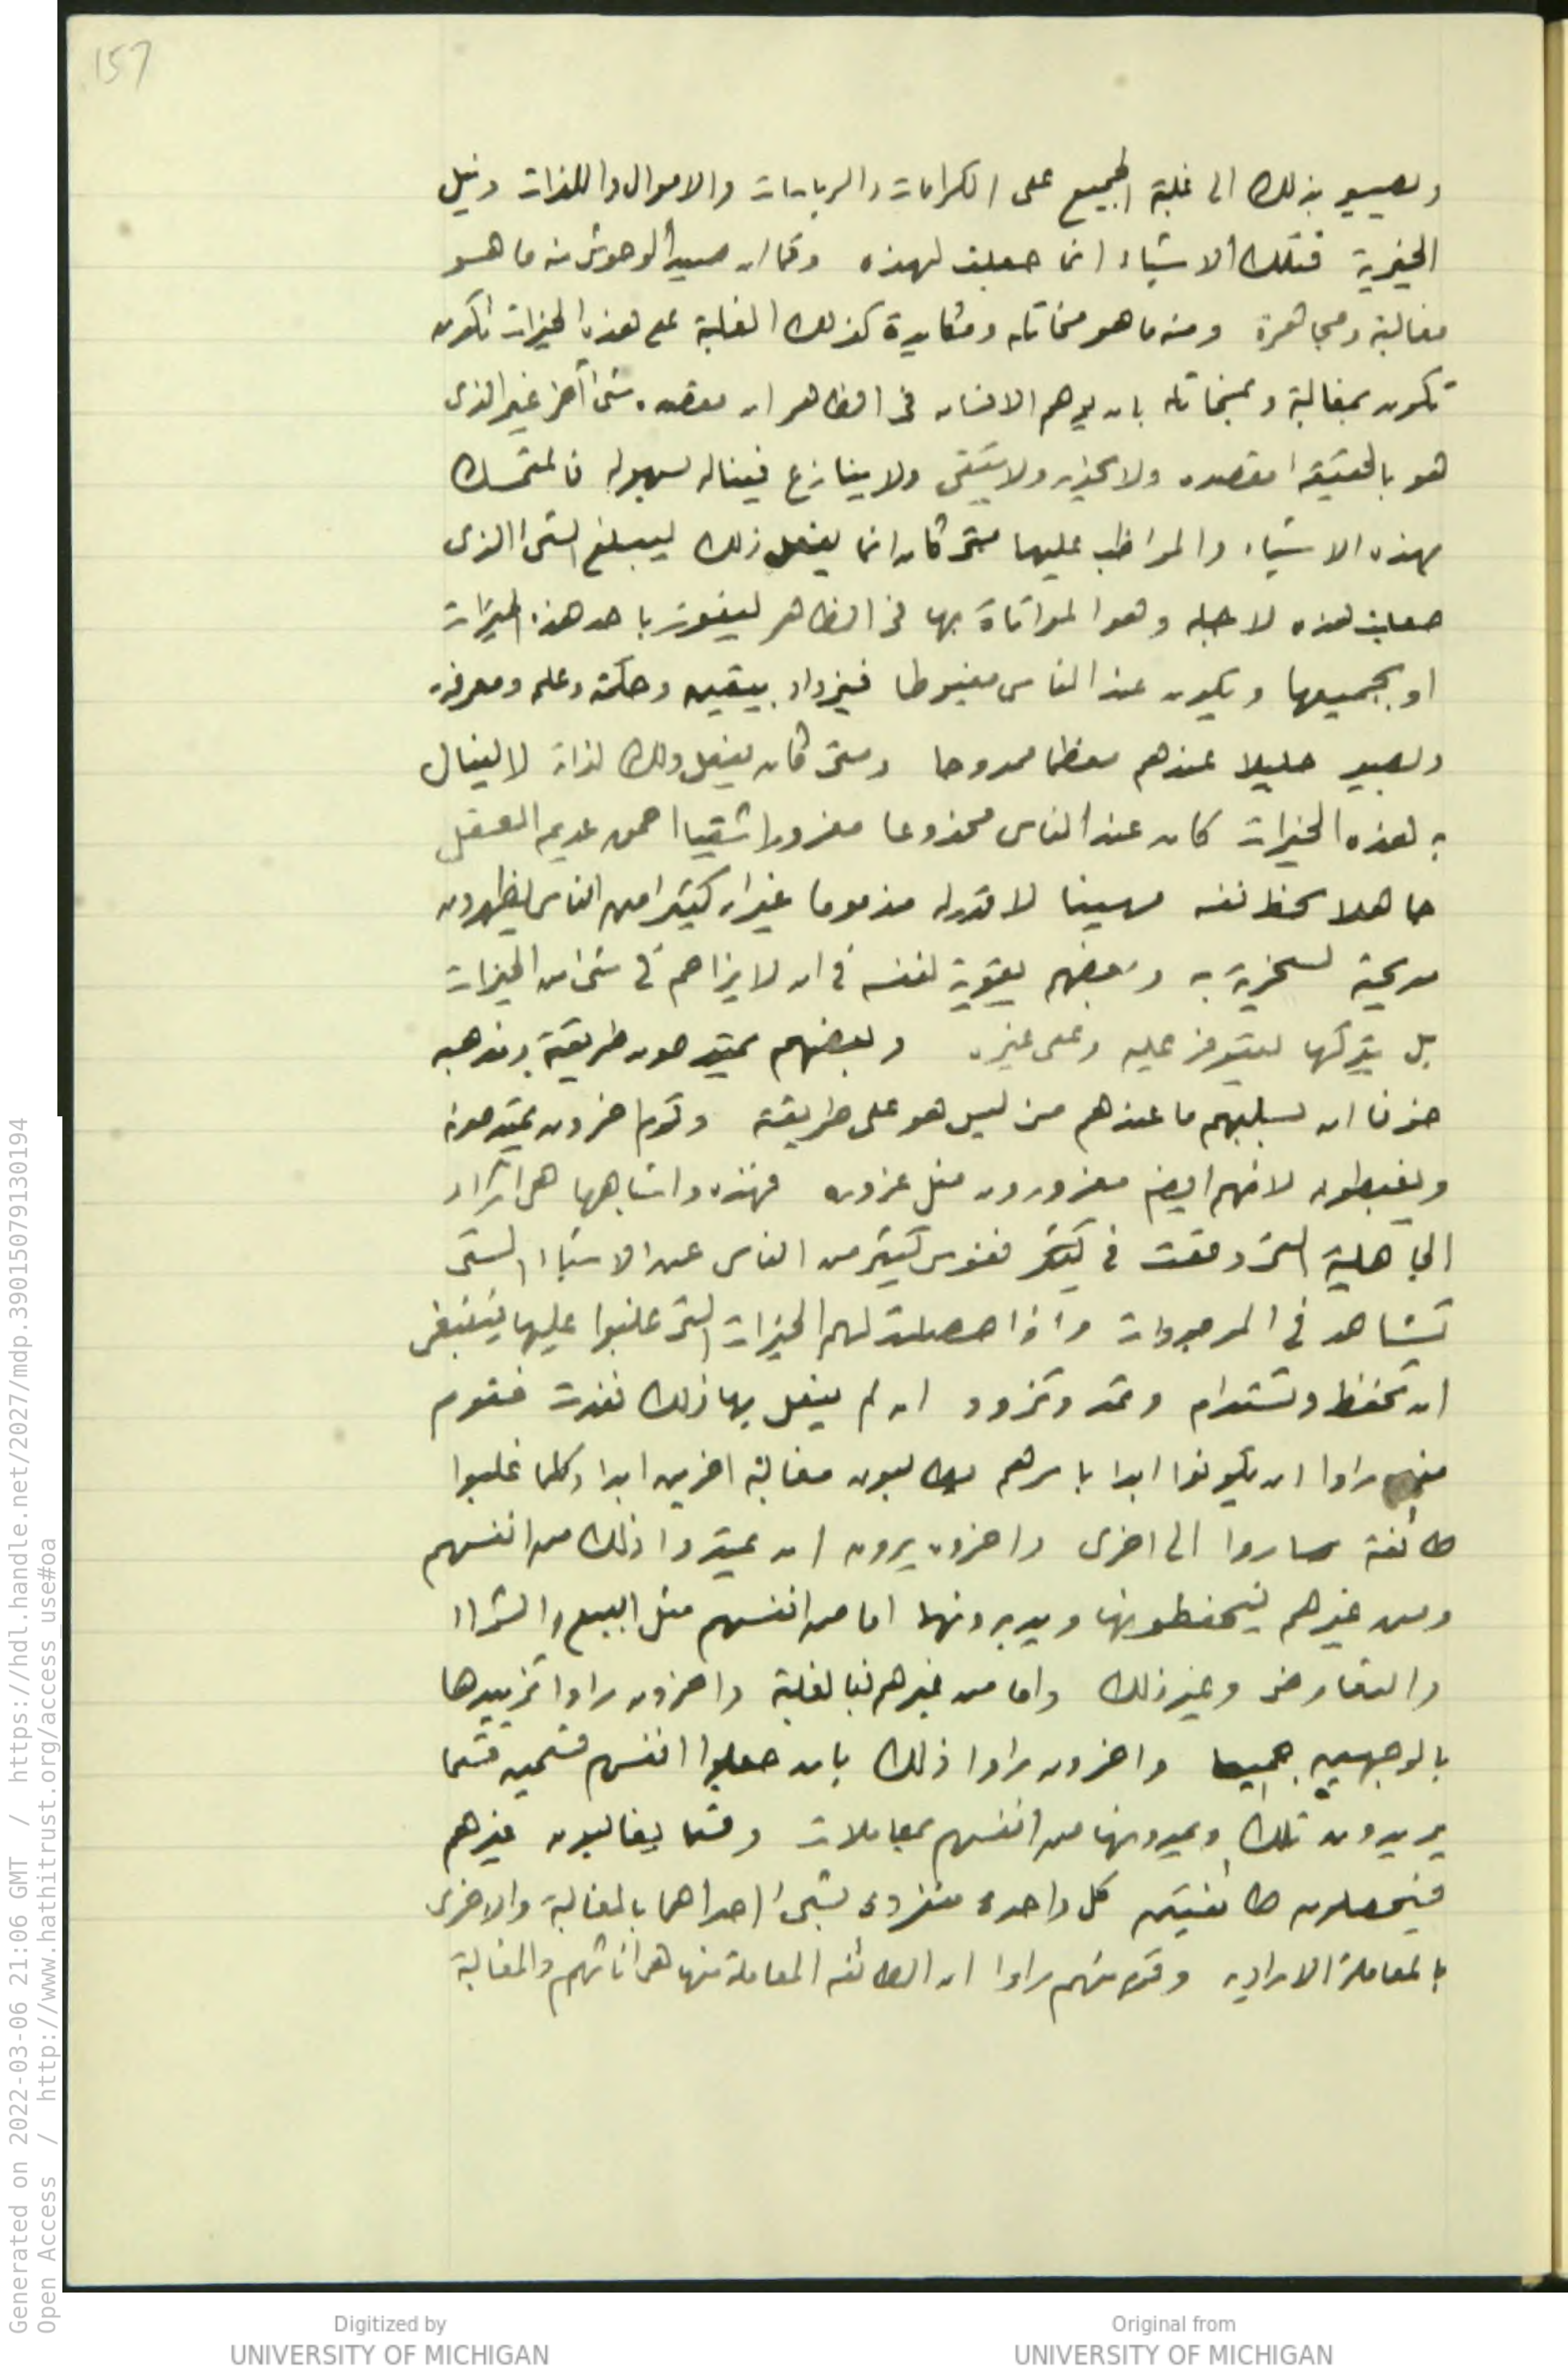 157
ويصير بذلك الى غلبة الجميع على الكرامات والرياسات والاموال واللذات ونيل
الحيرية فتلك الاشياء انما جعلت لهذه وكما ان صيد الوحوش منه ما هو
مغالبة ومجاهرة ومنه ما هو مخاتله ومكايدة كذلك الغلبة على هذه الخيرات تكون
تكون بمغالبة وبمخاتله بان يوهم الانسان فى الظاهر ان مقصده شئ آخر غير الذى
هو بالحقيقة مقصده ولا يحذر ولا يتقى ولا ينازع فيناله بسهوله فالمتمسك
بهذه الاشياء والمواظب عليها متى كان انما يفعل ذلك ليبلغ الشئ الذى
جعلت هذه لاجله وهو المواتاة بها فى الظاهر ليفوز باحد هذه الخيرات
او بجميعها ويكون عند الناس مغبوطا فيزداد بيقين وحكمة وعلم ومعرفة
ويصير جليلا عندهم معظما ممدوحا ومتى كان يفعل ذلك لذاته لا لينال
به هذه الخيرات كان عند الناس مخدوعا مغرورا شقيا احمق عديم العقل
جاهلا بحظ نفسه مهينا لا قدر له مذموما غير ان كثيرا من الناس يظهرون
مديحة لسخرية به وبعضهم يقويه لنفسه فى ان لا يزاحم فى شئ من الخيرات
بل يتركها ليتوفر عليه وعلى غيره وبعضهم يمتدحون طريقته ومذهبه
خوفا ان يسلبهم ما عندهم من ليس هو على طريقة وقوم اخرون يمتدحونه
ويغبطونه لانهم ايضا مغرورون مثل غروره فهذه واشباهها هى اراء
الجاهلية التى وقعت فى نفوس كثير من الناس عن الاشياء التى
تشاهد فى الموجودات واذا حصلت لهم الخيرات التى غلبوا عليها فينبغى
ان تحفظ وتستدام وتمد وتزود ان لم يفعل بها ذلك نفدت فقوم
منهم راوا ان يكونوا ابدا باسرهم يطلبون مغالبة اخرين ابدا وكلما غلبوا
طائفة ساروا الى اخرى واخرون يرون ان يمتدوا ذلك من انفسهم
ومن غيرهم فيحفظونها ويدبرونها اما من انفسهم مثل البيع والشراء
والتعارض وغير ذلك واما من غيرهم فبالغلبة واخرون راوا تزييدها
بالوجهين جميعا واخرون راوا ذلك بان جعلوا انفسهم قسمين قسما
يريدون تلك ويمدونها من انفسهم بمعاملات وقسما يغالبون غيرهم
فيحصلون طائفتين كل واحدة منفردة بشئ احداهما بالمغالبة والاخرى
بالمعاملة الاراديه وقوم منهم راوا ان الطائفه المعاملة منها هى اناثهم والمغالبة
Generated on 2022-03-06 21:06 GMT / https://hdl.handle.net/2027/mdp.39015079130194
Open Access / http://www.hathitrust.org/access_use#oa
Digitized by
UNIVERSITY OF MICHIGAN
Original from
UNIVERSITY OF MICHIGAN